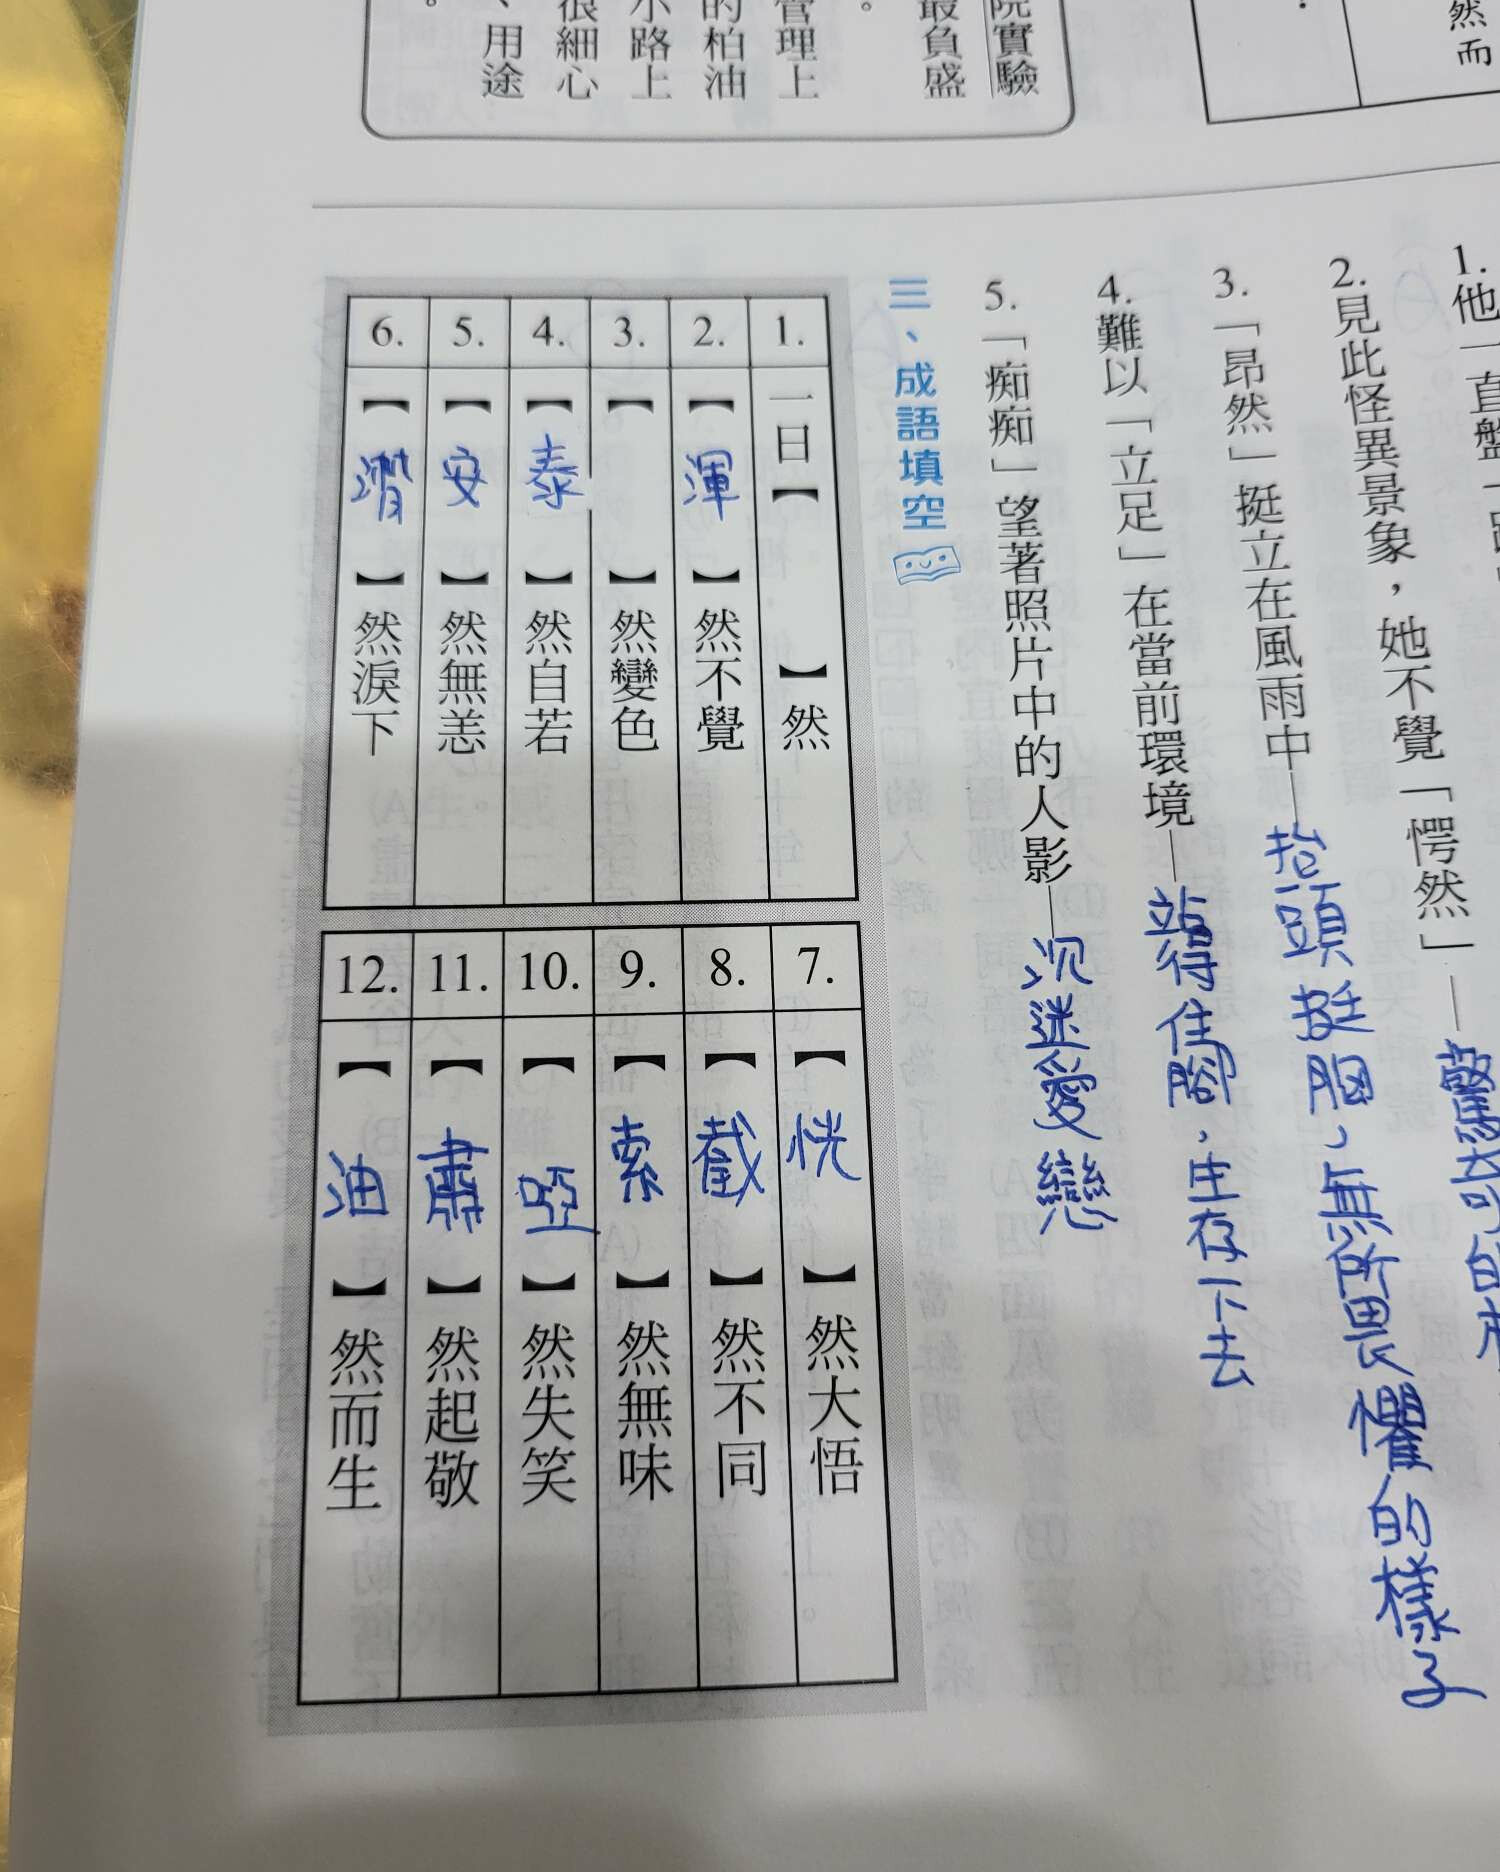 院實驗
最負盛
。
管理上
的柏油
小路上
很細心
、用途
。
然而
1.他一直盤
2.見此怪異景象，她不覺「愕然」—驚訝的
3.「昂然」挺立在風雨中—抬頭挺胸，無所畏懼的樣子
4.難以「立足」在當前環境—站得住腳，生存下去
5.「痴痴」望著照片中的人影—沉迷愛戀
三、成語填空
1.一日【 】然
2.【渾】然不覺
3.【 】然變色
4.【泰】然自若
5.【安】然無恙
6.【潸】然淚下
7.【恍】然大悟
8.【截】然不同
9.【索】然無味
10.【啞】然失笑
11.【肅】然起敬
12.【油】然而生